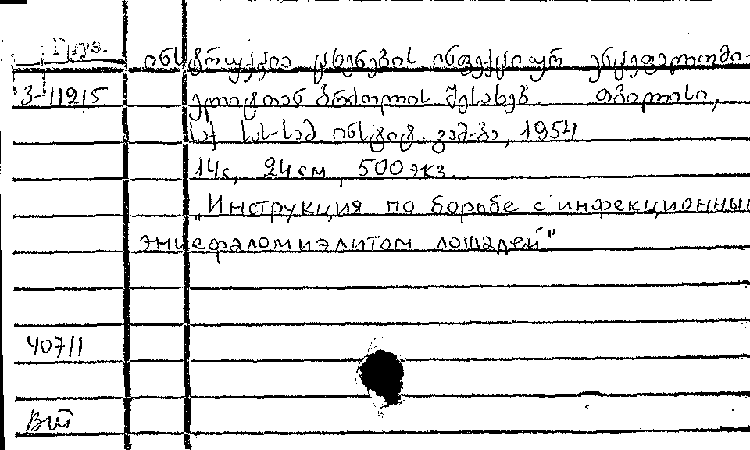 ინსტრუქცია ცხენების ინფექციურ ენცეფალომი
3-11215 ელიტთან ბრძოლის შესახებ. თბილისი,
სას-სამ. ინსტიტ. გამ-ბა, 1954
14с, 24см, 500экз.
„Инструкция по борьбе с инфекционным
энцефаломиэлитом лошадей"
40711